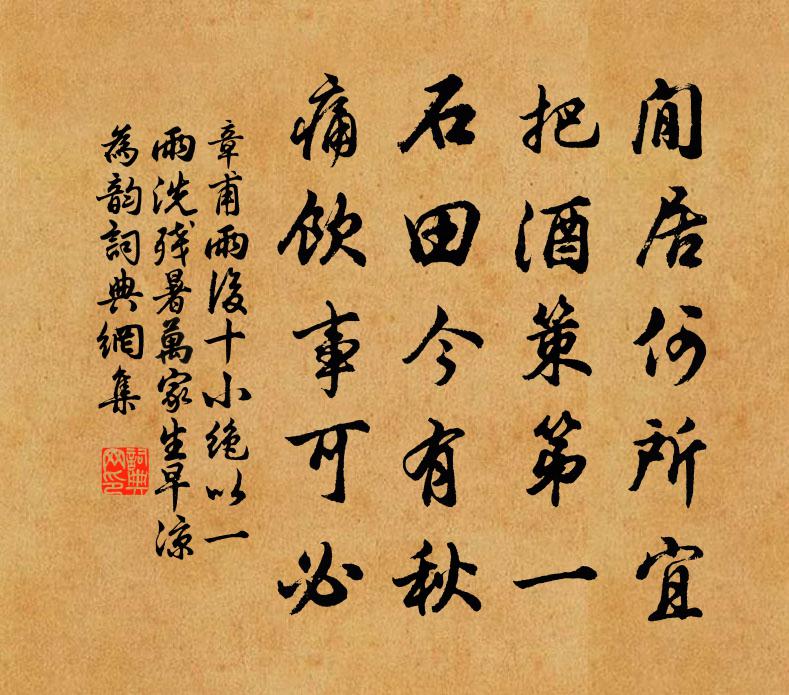 閒居何所宜
把酒策第一
石田今有秋
痛飲事可必
章甫雨後十小絶以一
雨洗残暑萬家生早凉
為韵詞典網集
詞典網印